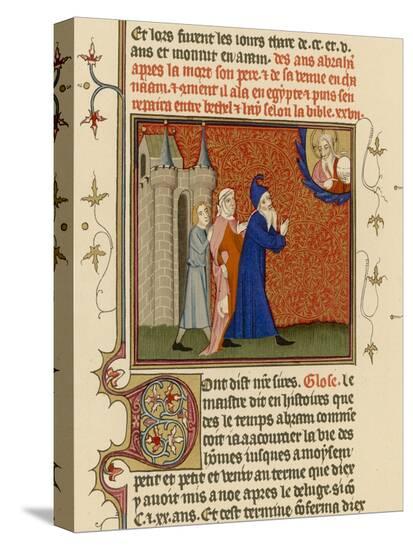 Et lors furent les iours thare de .cc. et .v.
ans et mourut en aram. des ans abrahā
apres la mort son pere. & de sa venue en ch
naam. & cment il ala en egypte & puis sen
repaira entre bethel & hay selon la bible. xxvii.
Dont dist nr̄e sires. Glose. Le
maistre dit en histoires que
des le temps abram comme
coit ia a acourcier la vie des
hōmes iusques a moysen
petit et petit et venir au terme que diex
y auoit mis a noe apres le deluge. si cō
C. & .xx. ans. Et cest termine cōferma diex